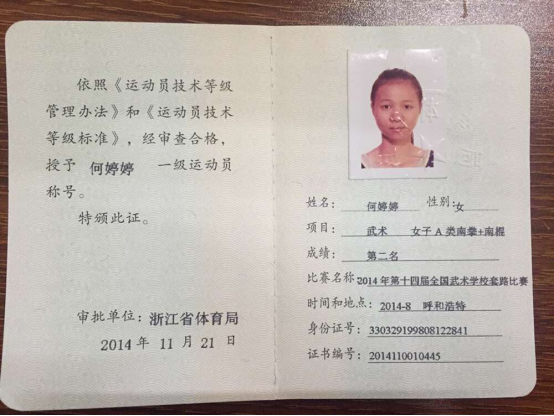 依照《运动员技术等级
管理办法》和《运动员技术
等级标准》，经审查合格，
授予 何婷婷 一级运动员
称号。
特颁此证。
审批单位：浙江省体育局
2014 年 11 月 21 日
姓名：何婷婷 性别：女
项目：武术 女子 A 类南拳+南棍
成绩：第二名
比赛名称：2014 年第十四届全国武术学校套路比赛
时间和地点：2014-8 呼和浩特
身份证号：330329199808122841
证书编号：2014110010445